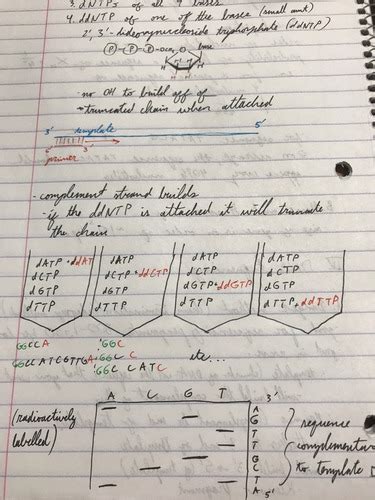 3. dNTPs of all 4 bases
4. ddNTP of one of the bases (small amt)
2', 3'-dideoxynucleoside triphosphate (ddNTP)
P-P-P-OCH2 O base
H H
- no OH to build off of
→ truncated chain when attached
3' template 5'
5' primer 3'
- complement strand builds
- if the ddNTP is attached it will truncate
the chain
dATP + ddAT dATP dATP dATP
dCTP dCTP + ddCTP dCTP dCTP
dGTP dGTP dGTP + ddGTP dGTP
dTTP dTTP dTTP dTTP + ddTTP
GGCCA GGC
GGCCATCGTTGA GGC C etc...
GGC CATC
A C G T 3'
(radioactively
labelled)
A
G
T
T
G
C
T
A 5'
sequence
complementary
to template